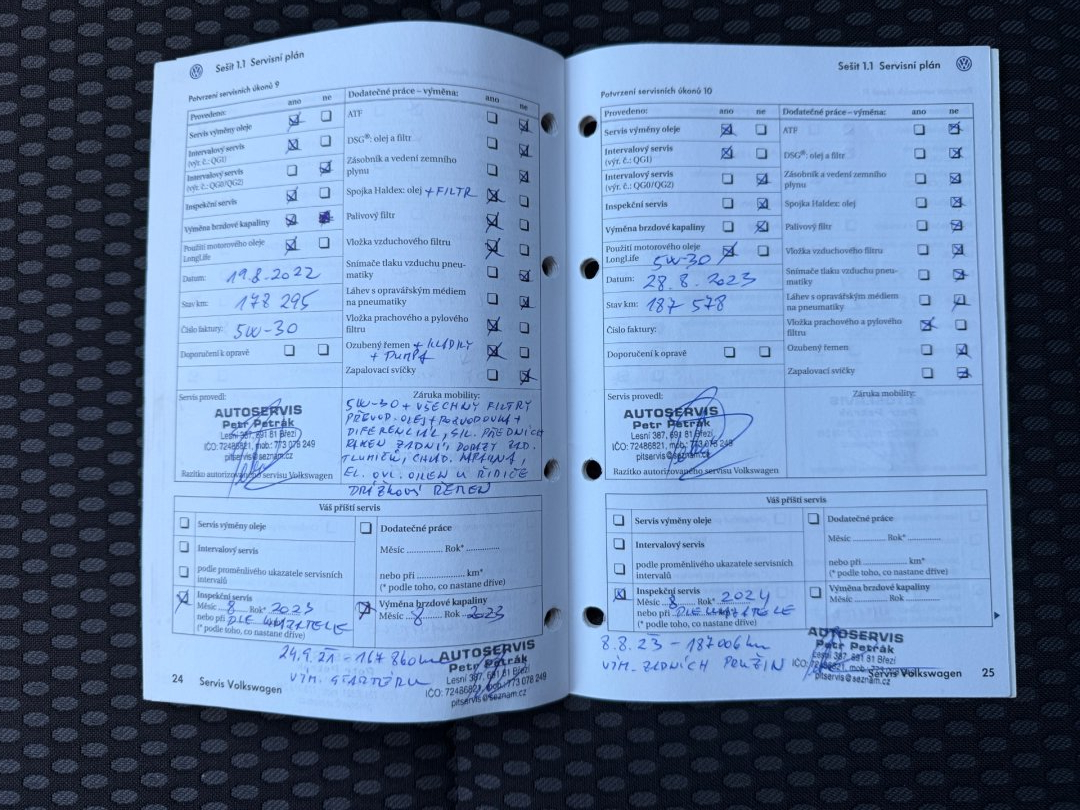 Sešit 1.1 Servisní plán
Potvrzení servisních úkonů 9
Provedeno: ano ne
Servis výměny oleje
Intervalový servis
(výr. č.: QG1)
Intervalový servis
(výr. č.: QG0/QG2)
Inspekční servis
Výměna brzdové kapaliny
Použití motorového oleje
LongLife
Datum: 19.8.2022
Stav km: 178 295
Číslo faktury: 5W-30
Doporučení k opravě
Dodatečné práce – výměna: ano ne
ATF
DSG®: olej a filtr
Zásobník a vedení zemního
plynu
Spojka Haldex: olej + FILTR
Palivový filtr
Vložka vzduchového filtru
Snímače tlaku vzduchu pneu-
matiky
Láhev s opravářským médiem
na pneumatiky
Vložka prachového a pylového
filtru
Ozubený řemen + KLADKY
+ PUMPA
Zapalovací svíčky
Servis provedl:
AUTOSERVIS
Petr Petrák
Lesní 387, 691 81 Březí
IČO: 72486821, mob.: 773 078 249
pitservis@seznam.cz
Razítko autorizovaného servisu Volkswagen
Záruka mobility:
5W-30 + VŠECHNY FILTRY
PŘEVOD. OLEJ + ROZVODOVKA +
DIFERENCIÁL, SIL. PŘEDNÍCH
RAMEN ZADNÍ, DORAZY ZAD.
TLUMIČŮ, CHLAD. KAPALINA,
EL. OVL. OKEN U ŘIDIČE
DRÁŽKOVÝ ŘEMEN
Váš příští servis
Servis výměny oleje
Intervalový servis
podle proměnlivého ukazatele servisních
intervalů
Inspekční servis
Měsíc 8 Rok* 2023
nebo při DLE UKAZATELE
(* podle toho, co nastane dříve)
Dodatečné práce
Měsíc .............. Rok* ..............
nebo při ...................... km*
(* podle toho, co nastane dříve)
Výměna brzdové kapaliny
Měsíc 8 Rok 2023
24.9.21 - 167 860 km
VÝM. STARTÉRU
AUTOSERVIS
Petr Petrák
Lesní 387, 691 81 Březí
IČO: 72486821, mob.: 773 078 249
pitservis@seznam.cz
24 Servis Volkswagen
Sešit 1.1 Servisní plán
Potvrzení servisních úkonů 10
Provedeno: ano ne
Servis výměny oleje
Intervalový servis
(výr. č.: QG1)
Intervalový servis
(výr. č.: QG0/QG2)
Inspekční servis
Výměna brzdové kapaliny
Použití motorového oleje
LongLife 5W-30
Datum: 28.8.2023
Stav km: 187 578
Číslo faktury:
Doporučení k opravě
Dodatečné práce – výměna: ano ne
ATF
DSG®: olej a filtr
Zásobník a vedení zemního
plynu
Spojka Haldex: olej
Palivový filtr
Vložka vzduchového filtru
Snímače tlaku vzduchu pneu-
matiky
Láhev s opravářským médiem
na pneumatiky
Vložka prachového a pylového
filtru
Ozubený řemen
Zapalovací svíčky
Servis provedl:
AUTOSERVIS
Petr Petrák
Lesní 387, 691 81 Březí
IČO: 72486821, mob.: 773 078 249
pitservis@seznam.cz
Razítko autorizovaného servisu Volkswagen
Záruka mobility:
Váš příští servis
Servis výměny oleje
Intervalový servis
podle proměnlivého ukazatele servisních
intervalů
Inspekční servis
Měsíc 8 Rok* 2024
nebo při DLE UKAZATELE
(* podle toho, co nastane dříve)
Dodatečné práce
Měsíc .............. Rok* ..............
nebo při ...................... km*
(* podle toho, co nastane dříve)
Výměna brzdové kapaliny
Měsíc .............. Rok ..............
8.8.23 - 187006 km
VÝM. ZADNÍCH PRUŽIN
AUTOSERVIS
Petr Petrák
Lesní 387, 691 81 Březí
IČO: 72486821, mob.: 773 078 249
pitservis@seznam.cz
Servis Volkswagen 25